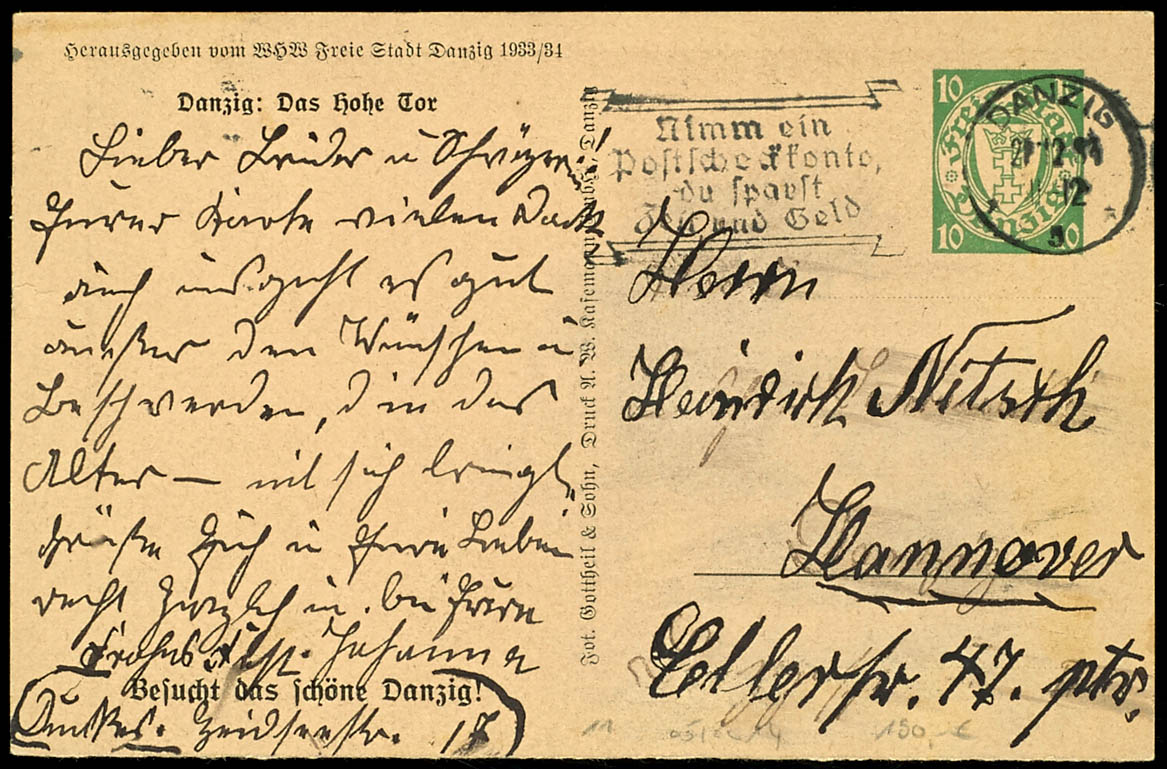 Herausgegeben vom WHW Freie Stadt Danzig 1933/34
Danzig: Das Hohe Tor
Lieber Bruder u Schwägerin!
Eurer Karte vielen Dank
auch uns geht es gut
außer den
Beschwerden, d in das
Alter — mit sich bringt,
grüße Euch u Eure Lieben
recht herzlich u.
Frohes Fest. Johanna
Besucht das schöne Danzig!
17
Fot. Gottheil & Sohn, Druck A. W. Kafemann G.m.b.H., Danzig
Nimm ein
Postscheckkonto,
du sparst
Zeit und Geld
10
Freie Stadt
Danzig
10
10
DANZIG
12
Herrn
Heinrich Nitsch
Hannover
Cellerstr. 47. ptr.
11
190,- €